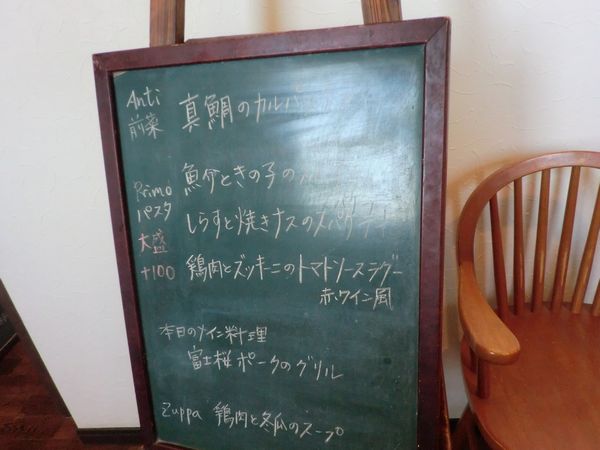 Anti 真鯛のカルパ
前菜
Primo 魚介ときの子の
パスタ しらすと焼きナスのスパゲティ
大盛
+100 鶏肉とズッキーニのトマトソースラグー
赤ワイン風
本日のメイン料理
富士桜ポークのグリル
Zuppa 鶏肉と冬瓜のスープ